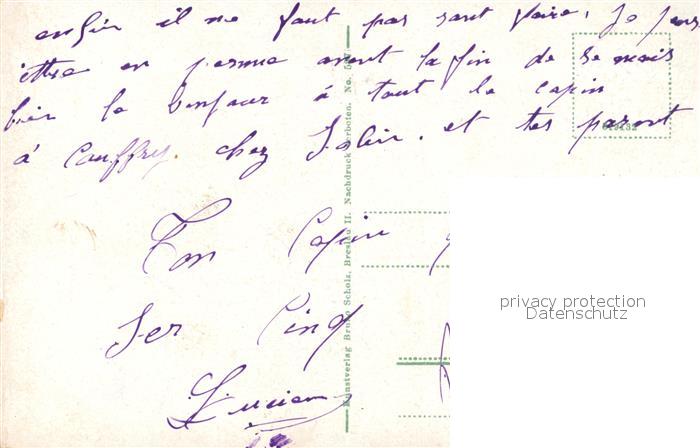 enfin il ne faut pas sant faire, Je pens
ittre en permie avent la fin de se mois
bien le bonjour à tout le copin
à Couffry. chez Jolin. et tes parent
Ton Copin
Ser Cinq
Lucien
Kunstverlag Bruno Scholz, Breslau II. Nachdruck verboten. No.
privacy protection
Datenschutz